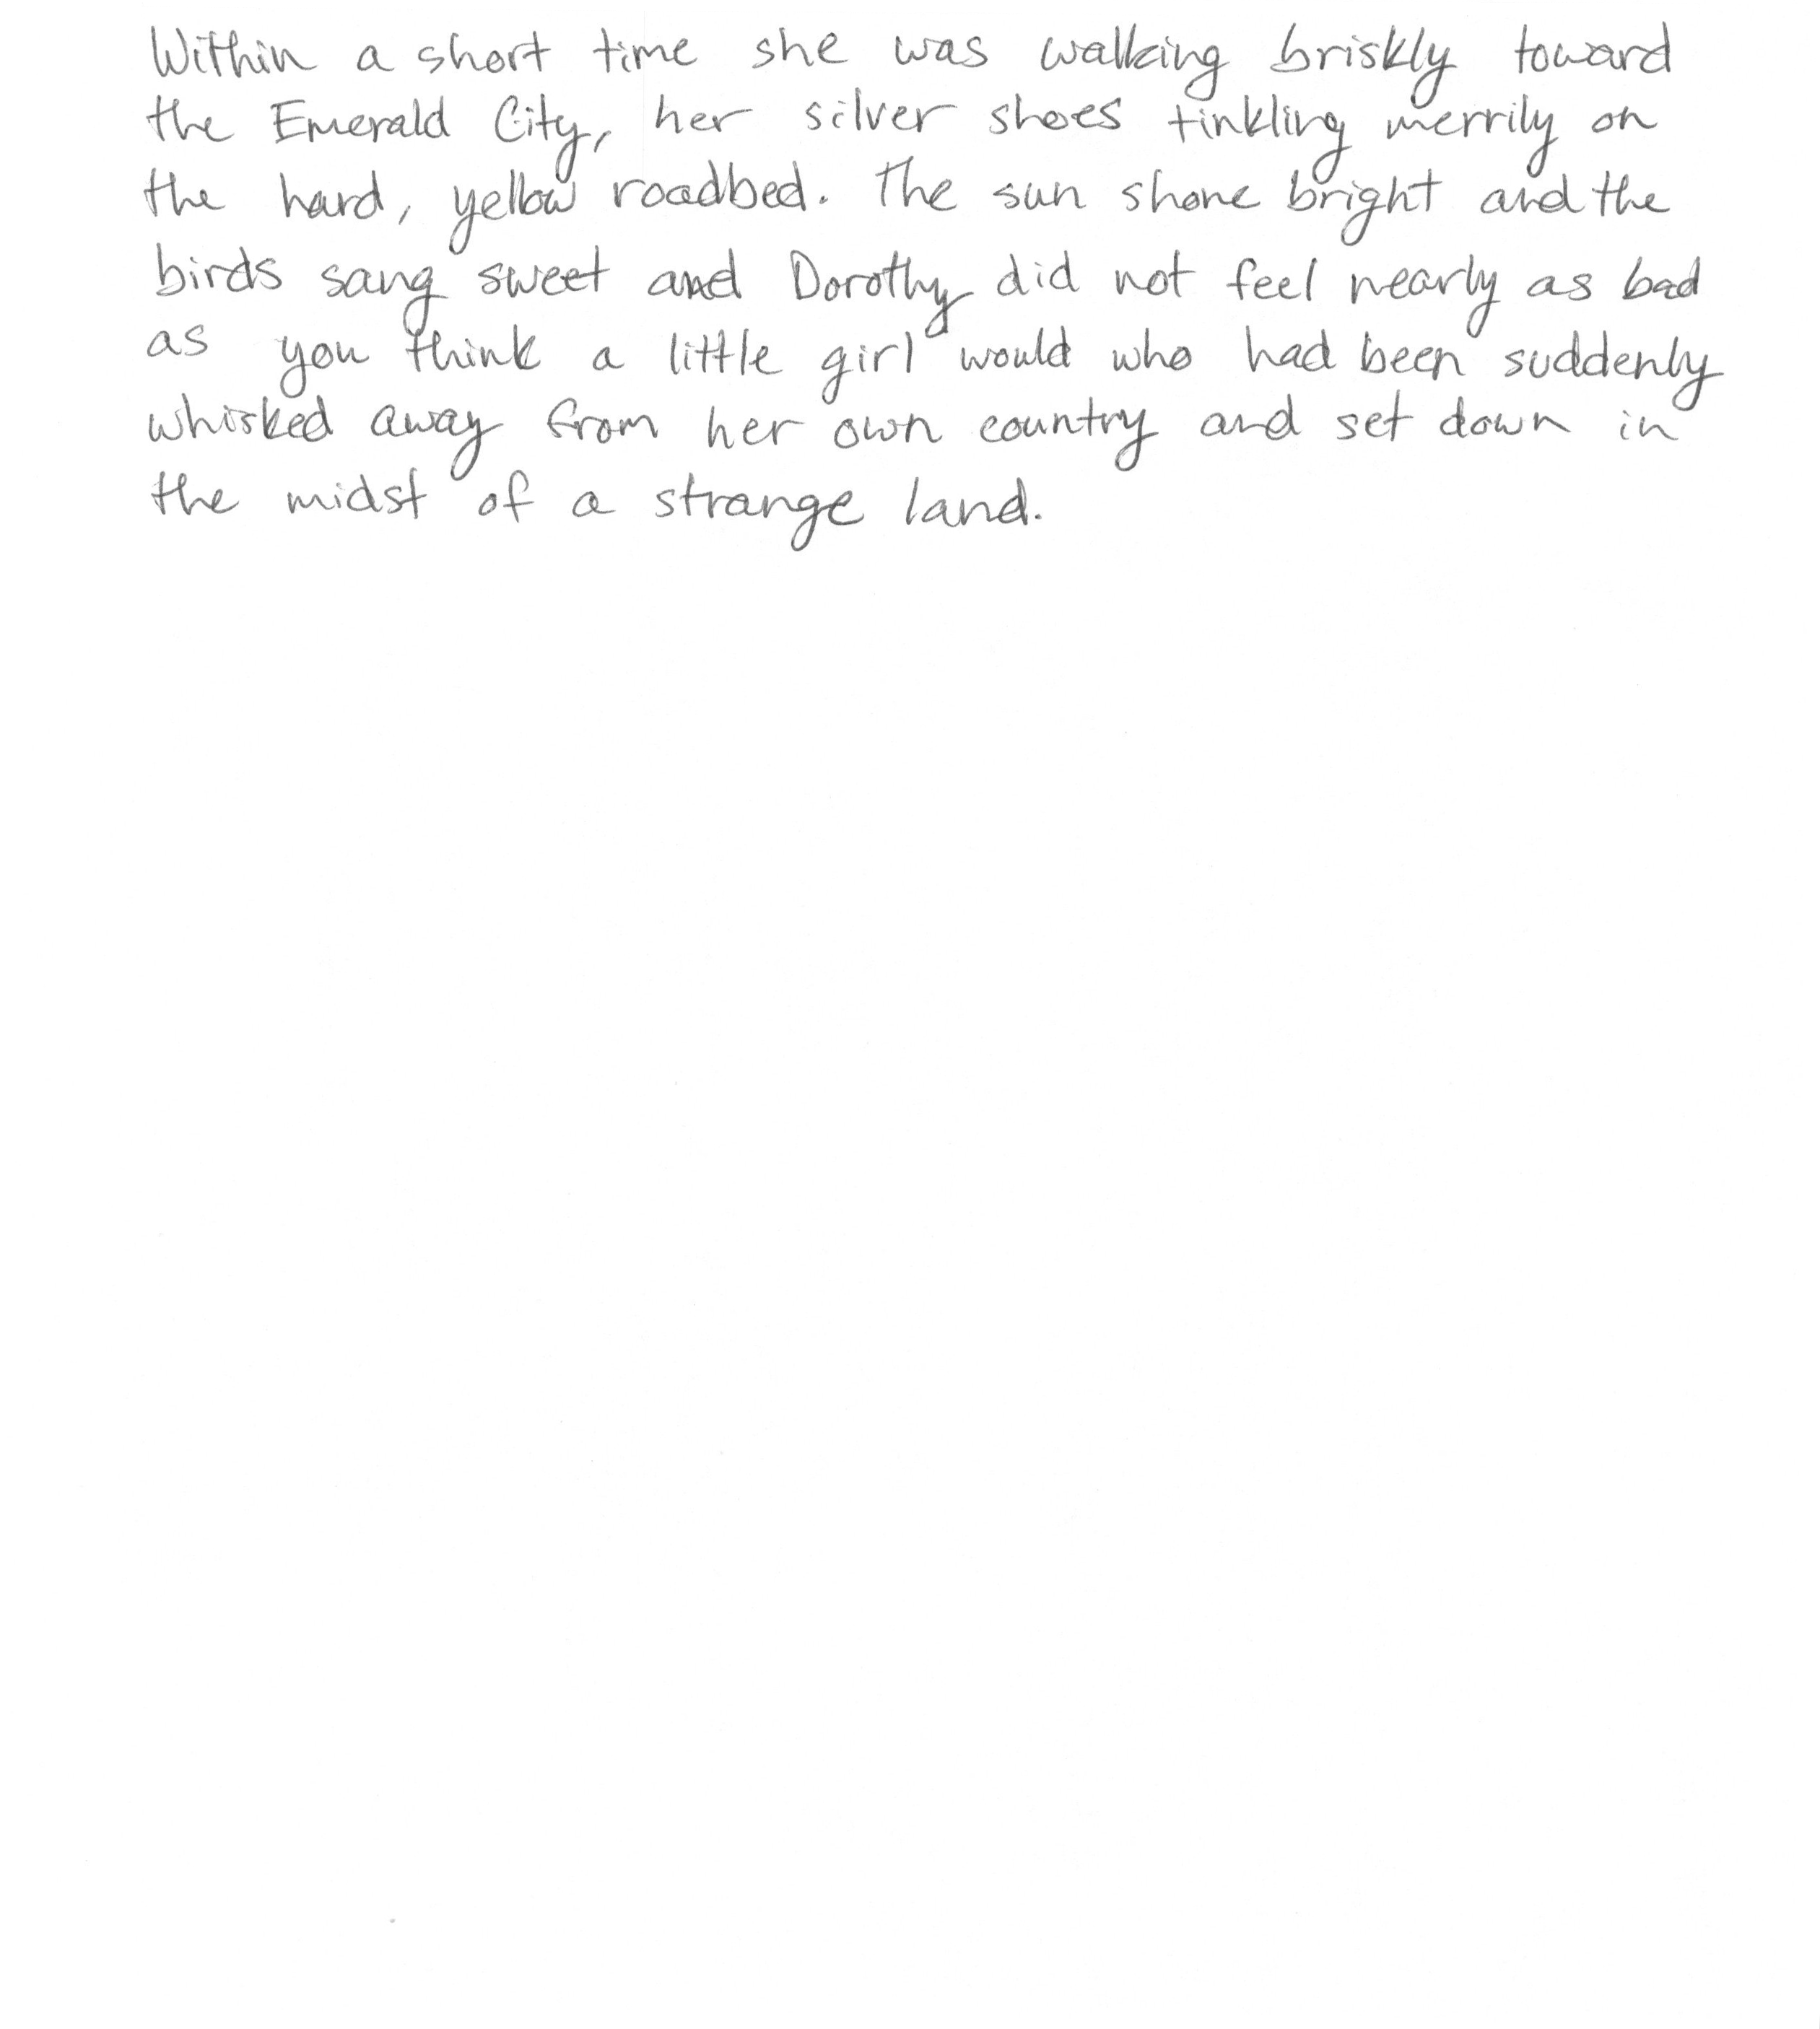 Within a short time she was walking briskly toward
the Emerald City, her silver shoes tinkling merrily on
the hard, yellow roadbed. The sun shone bright and the
birds sang sweet and Dorothy did not feel nearly as bad
as you think a little girl would who had been suddenly
whisked away from her own country and set down in
the midst of a strange land.